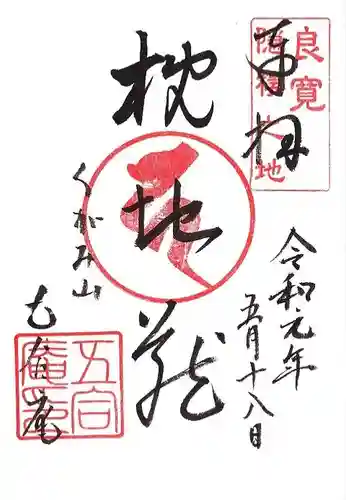 良寛
隠棲地
奉拝
令和元年
五月十八日
枕地蔵
くがみ山
五合庵
五合
庵印